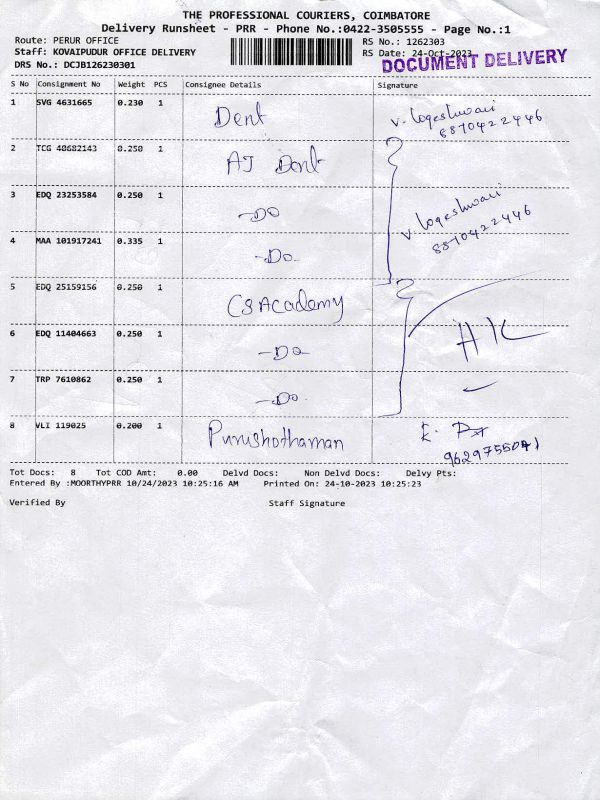 THE PROFESSIONAL COURIERS, COIMBATORE
Delivery Runsheet - PRR - Phone No.:0422-3505555 - Page No.:1
Route: PERUR OFFICE RS No.: 1262303
Staff: KOVAIPUDUR OFFICE DELIVERY RS Date: 24-Oct-2023
DOCUMENT DELIVERY
DRS No.: DCJB126230301
S No Consignment No Weight PCS Consignee Details Signature
1 SVG 4631665 0.230 1 Dent V. Logeshwari
8870422446
2 TCG 40682143 0.250 1 AJ Dent
3 EDQ 23253584 0.250 1 -Do V. Logeshwari
8870422446
4 MAA 101917241 0.335 1 -Do.
5 EDQ 25159156 0.250 1 CS Academy
6 EDQ 11404663 0.250 1 -Do HK
7 TRP 7610862 0.250 1 -Do.
8 VLI 119025 0.200 1 Purushothaman
9629755041
Tot Docs: 8 Tot COD Amt: 0.00 Delvd Docs: Non Delvd Docs: Delvy Pts:
Entered By :MOORTHYPRR 10/24/2023 10:25:16 AM Printed On: 24-10-2023 10:25:23
Verified By Staff Signature